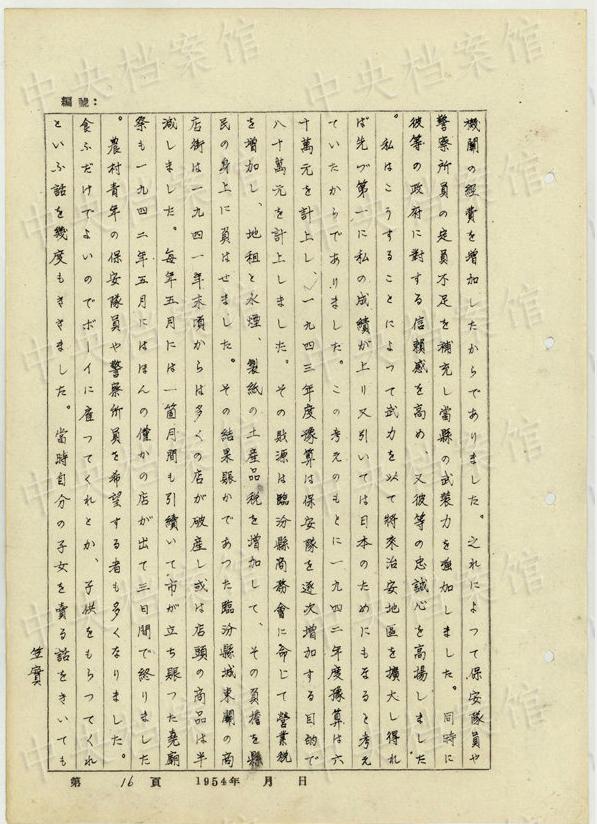 編號：
機関の経費を増加したからでありました。之れによつて保安隊員や
警察所員の定員不足を補充し當縣の武装力を強加しました。同時に
彼等の政府に対する信頼感を高め、又彼等の忠誠心を高揚しました
。私はこうすることによつて武力を以て将来治安地區を擴大し得れ
ば先づ第一に私の成績が上り又引いては日本のためにもなると考え
ていたからでありました。この考えのもとに一九四二年度豫算は六
十萬元を計上し、一九四三年度豫算は保安隊を逐次増加する目的で
八十萬元を計上しました。その財源は臨汾縣商務會に命じて營業税
を増加し、地租と水煙、製紙の土産品税を増加して、その負擔を縣
民の身上に負はせました。その結果賑かであつた臨汾縣城東関の商
店街は一九四一年末頃からは多くの店が破産し或は店頭の商品は半
減しました。毎年五月には一箇月間も引續いて市が立ち賑つた堯廟
祭も一九四二年五月にはほんの僅かの店が出て三日間で終りました
。農村青年の保安隊員や警察所員を希望する者も多くなりました。
食ふだけでよいのでボーイに雇つてくれとか、子供をもらつてくれ
といふ話を幾度もききました。當時自分の子女を賣る話をきいても
笠實
第 16 頁 1954年 月 日
中央档案馆